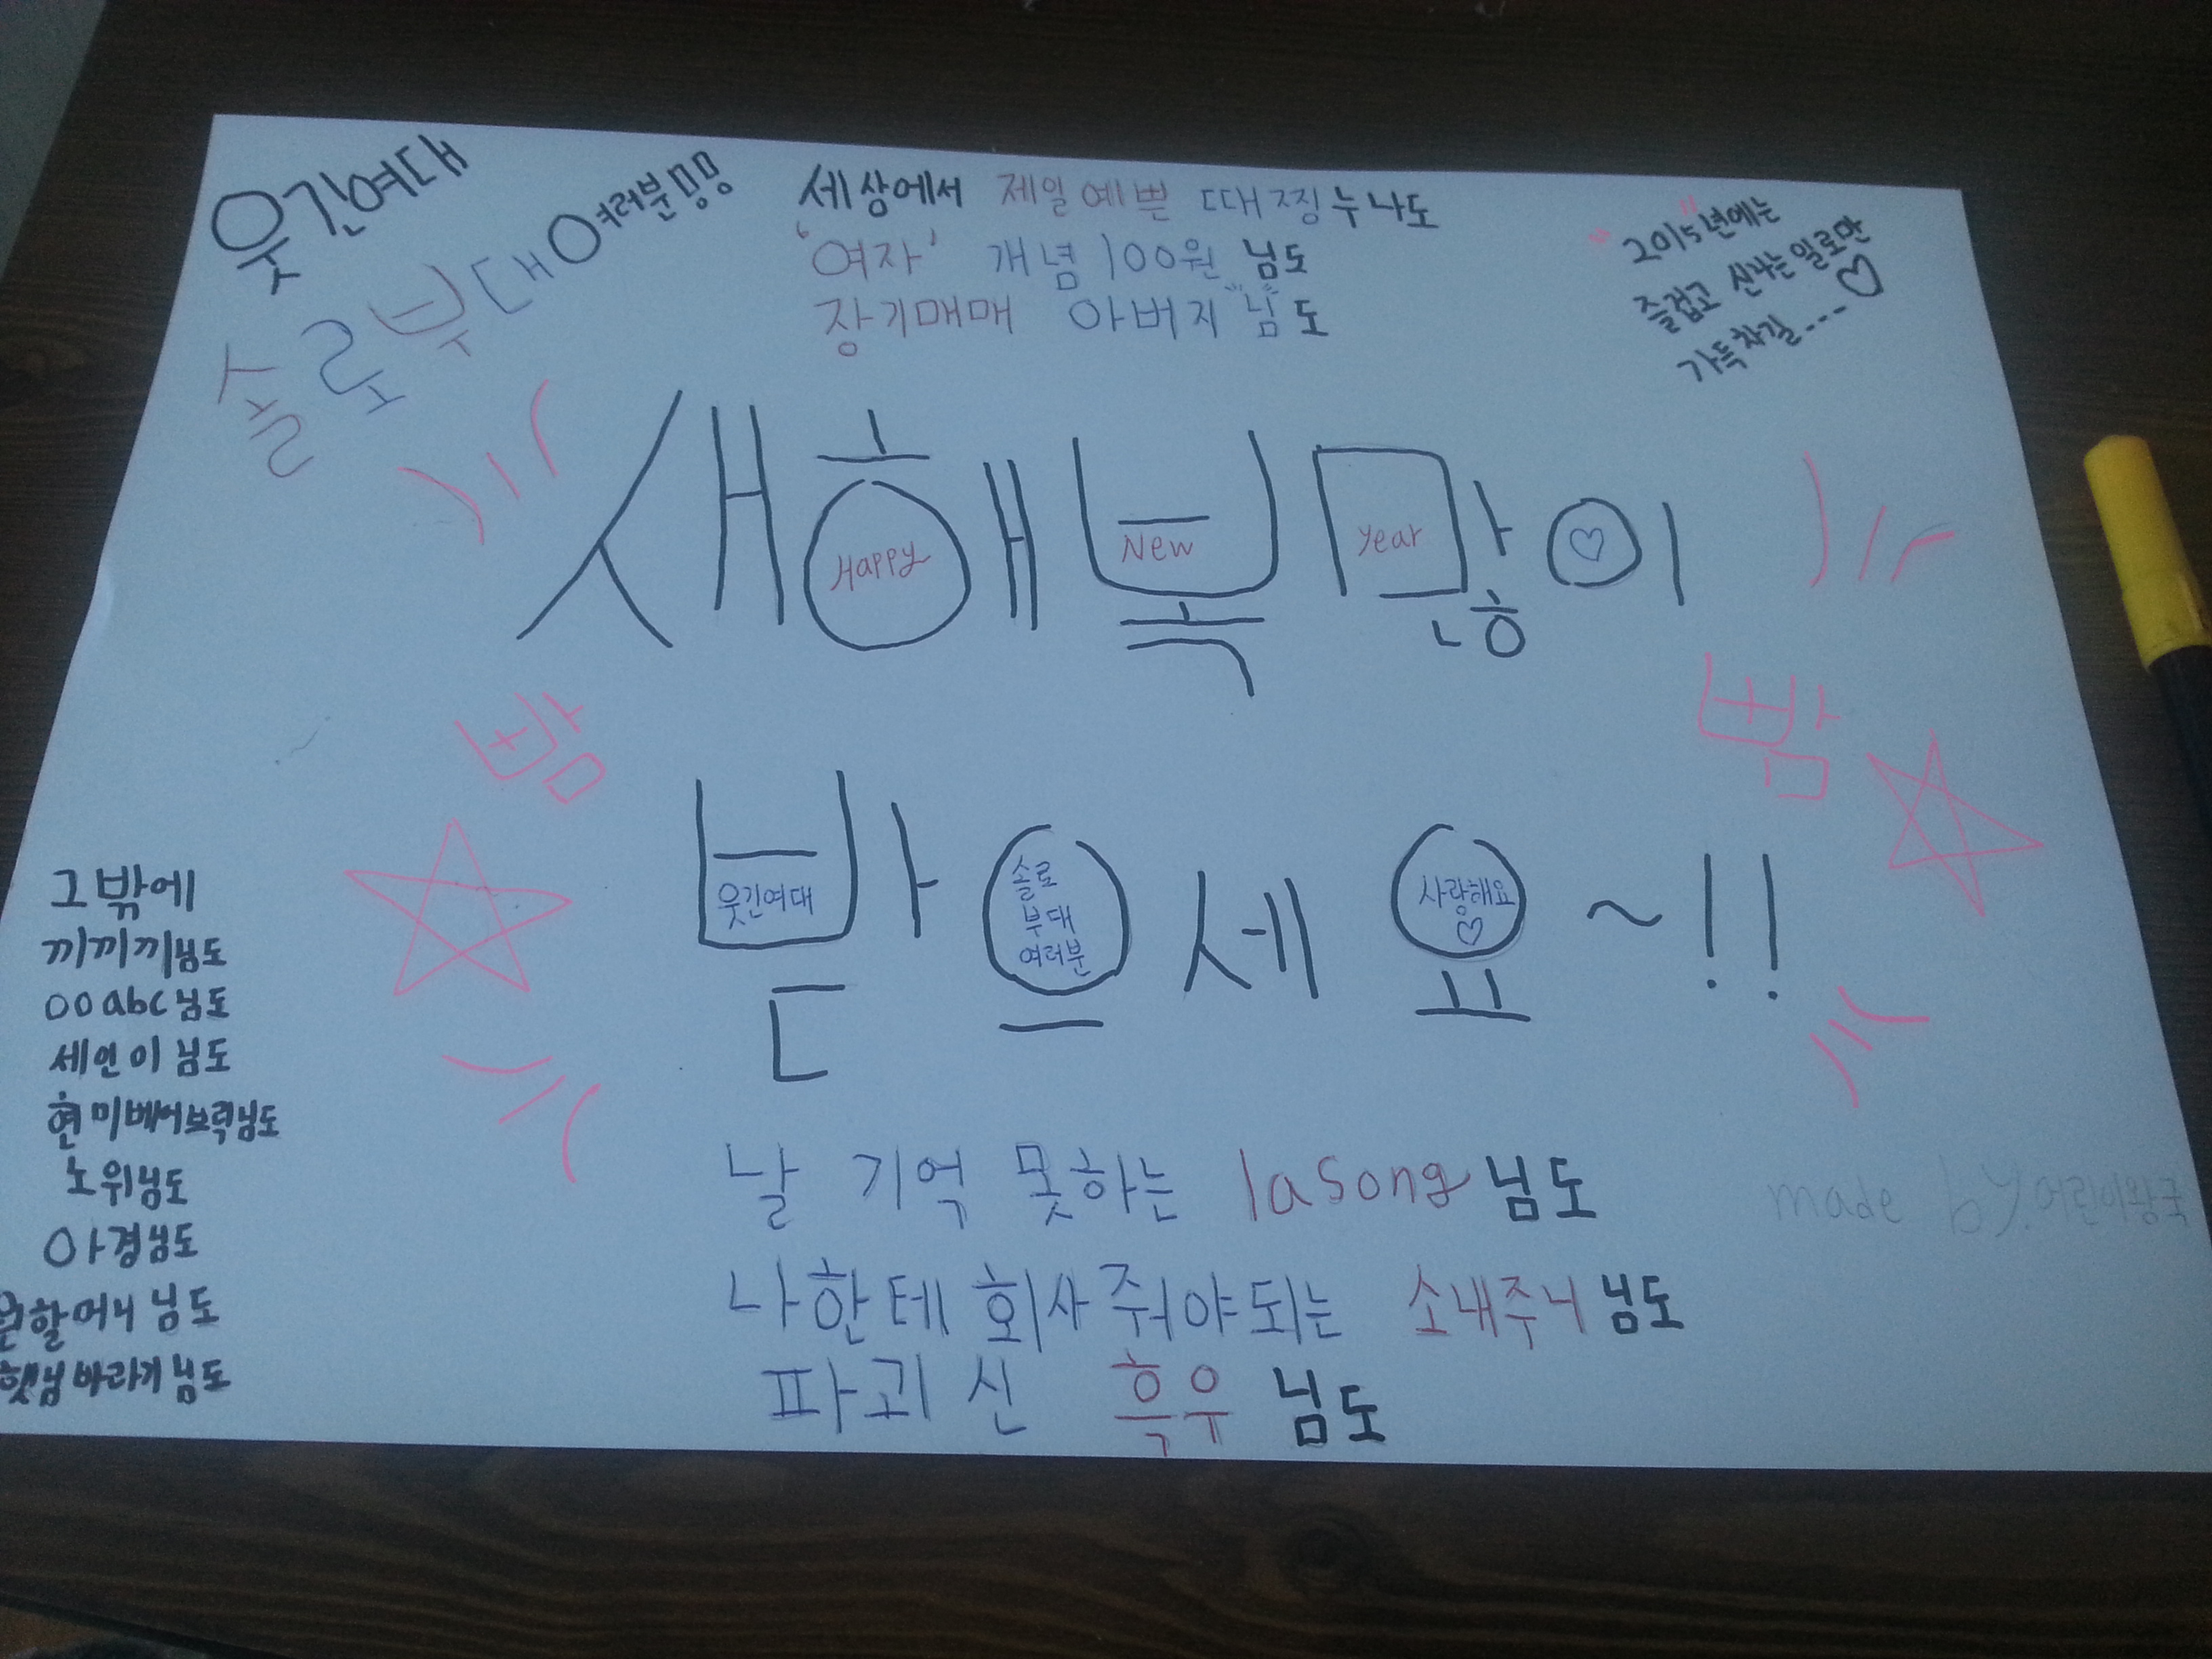 웃긴여대
솔로부대 여러분
세상에서 제일예쁜 때찡누나도
'여자' 개념100원 님도
장기매매 아버지"님"도
"2015"년에는
즐겁고 신나는일로만
가득차길---♡
새해복많이
Happy New Year ♡
빰 빰
받으세요~!!
웃긴여대
솔로
부대
여러분
사랑해요
♡
그밖에
끼끼끼님도
ooabc님도
세인이님도
현미베어브릭님도
노위님도
아경님도
할머니님도
햇님바라기님도
날 기억 못하는 lasong님도
나한테 회사줘야되는 소내주너님도
파괴신 흑우님도
made by.어린이왕국